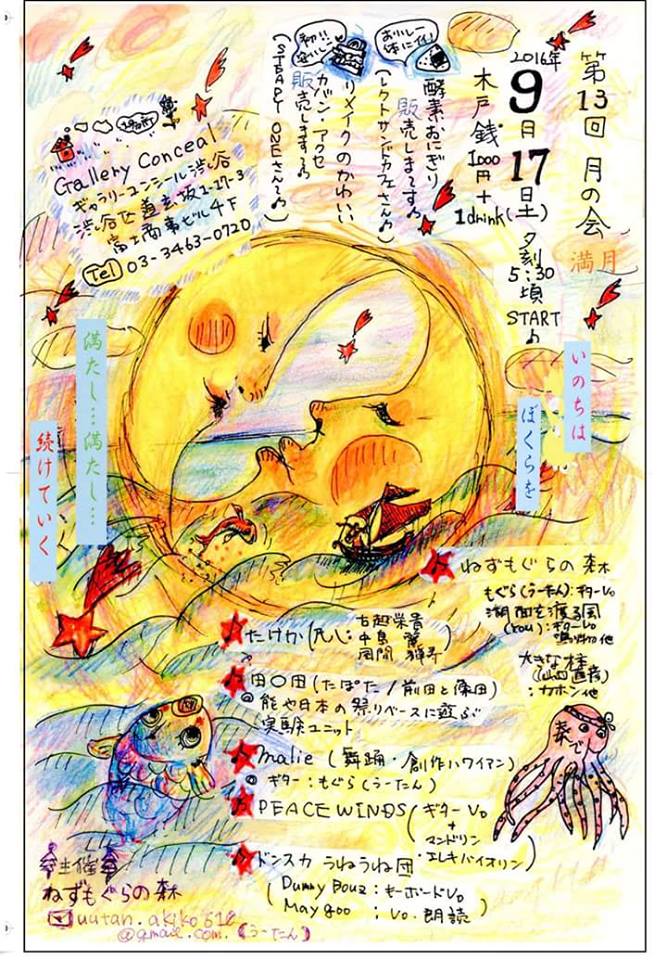 第13回 月の会
満月
2016年
9月17日(土)
夕刻
5:30
頃
START
木戸銭
1000円+
1drink
おいしー
体にイイ!
酵素おにぎり
販売しまーする
初!!
リメイクのかわいい
カバン・アクセ
販売しまする
(STRAPY ONEさん)
Gallery Conceal
ギャラリーコンシール渋谷
渋谷区道玄坂1-27-3
富士商事ビル4F
Tel 03-3463-0720
いのちは
ぼくらを
満たし…満たし…
続けていく
ねずもぐらの森
もぐら(うーたん):ギターVo
湖面を渡る風
(You):ギターVo
鳴り物他
大きな柱
:カホン他
たけか(尺八:
田〇田(たぽた/前田と藤田)
◎能や日本の祭リベースに遊ぶ
実験ユニット
malie(舞踊・創作ハワイアン)
◎ギター:もぐら(うーたん)
PEACE WINDS(ギターVo
+
マンドリン
・エレキバイオリン)
ドンスカうねうね団
(Dummy Bouz:キーボードVo
May goo:Vo.朗読)
主催
ねずもぐらの森
uutan.akiko610
@gmail.com.(うーたん)